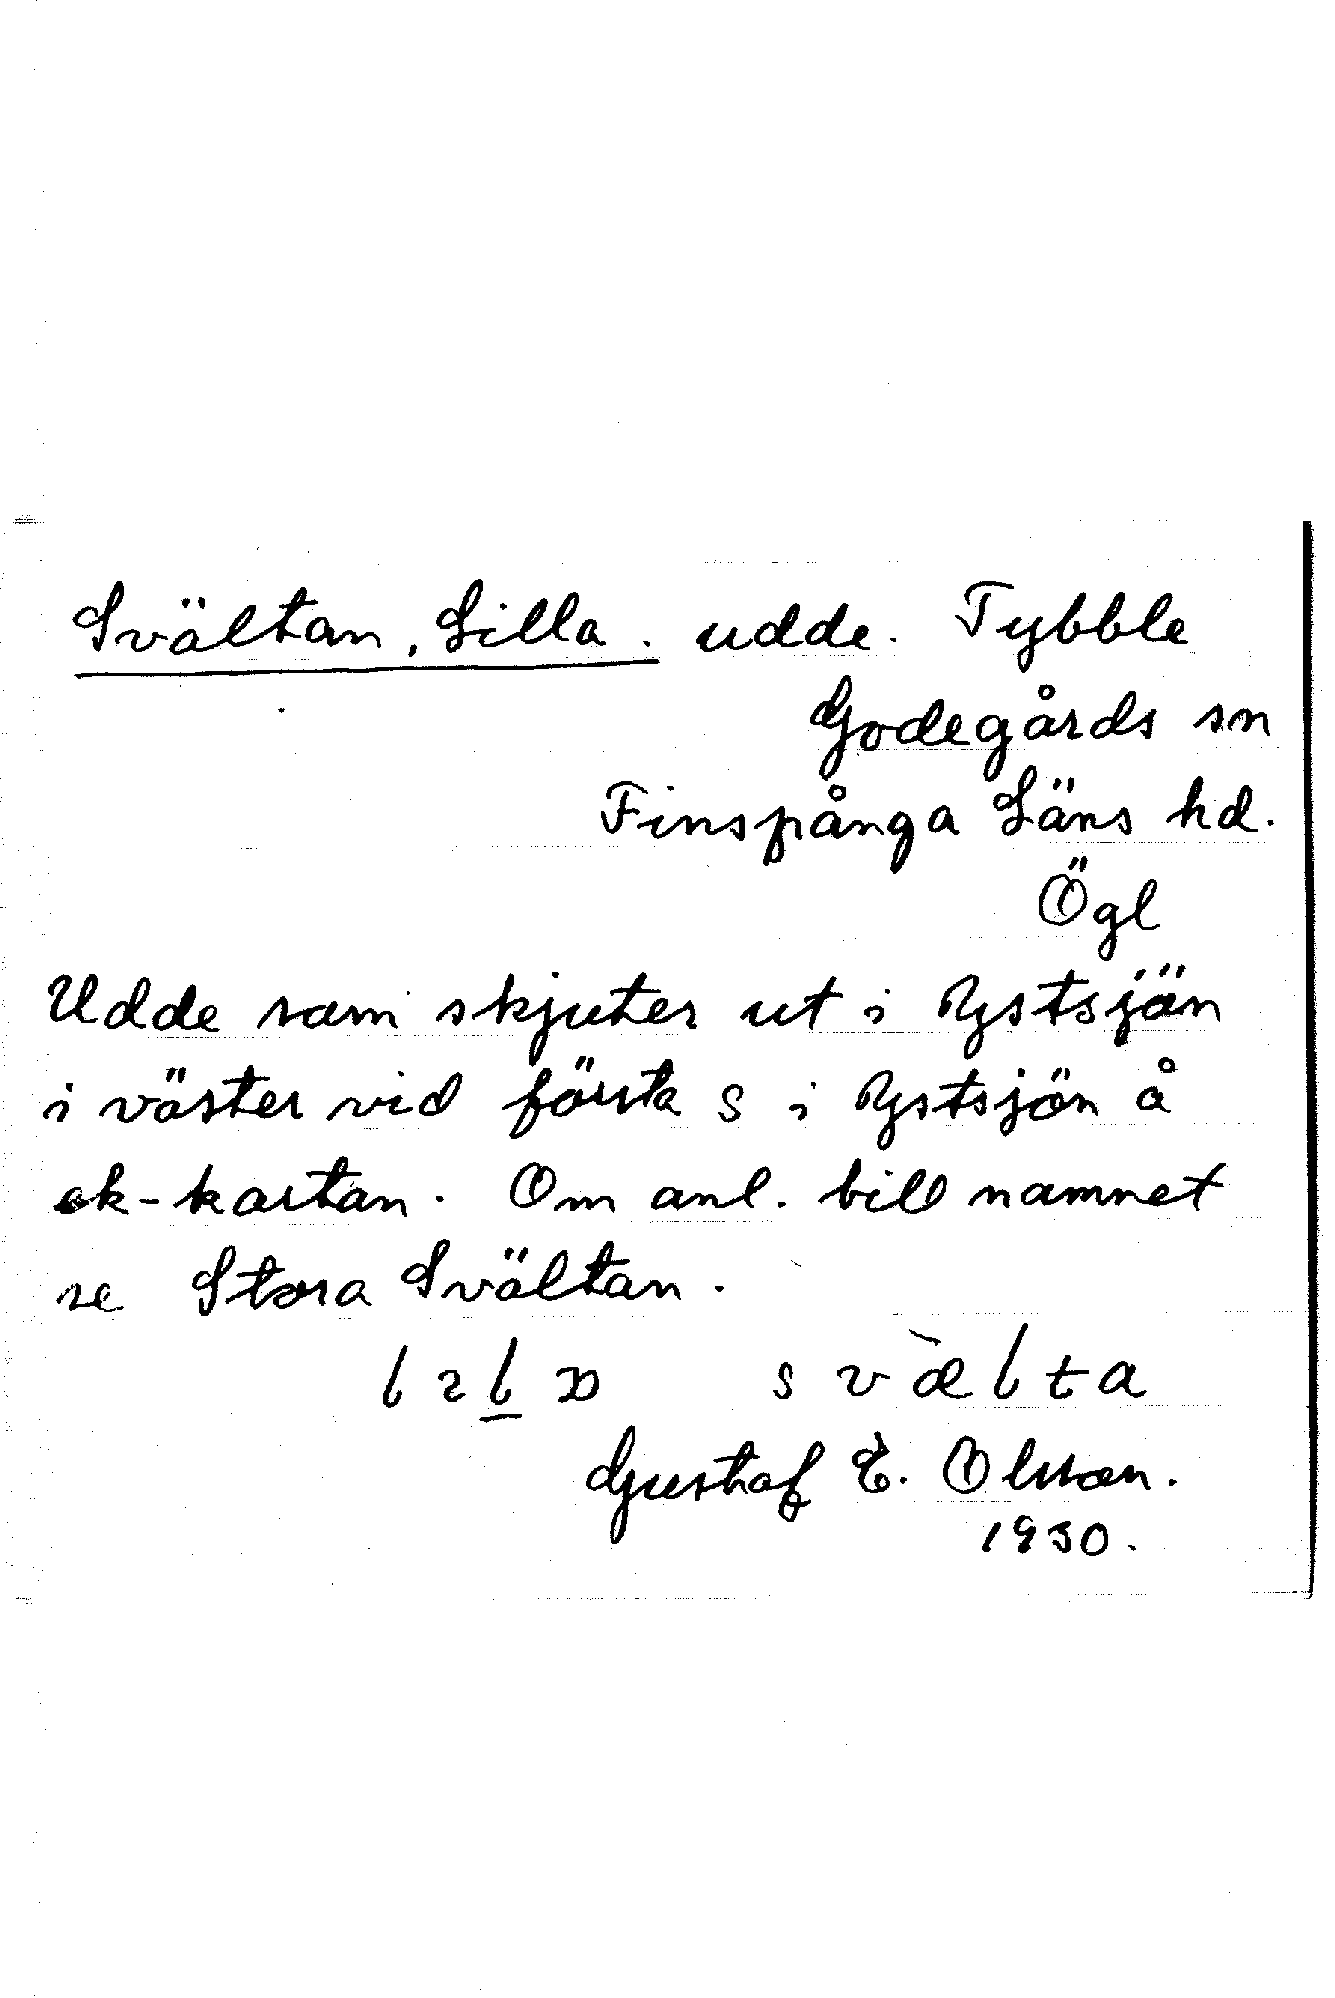 Svältan, Lilla. udde. Tybble
Godegårds sn
Finspånga Läns hd.
Ögl
Udde som skjuter ut i Ystsjön
i väster vid första s i Ystsjön å
ek-kartan. Om anl. till namnet
se Stora Svältan.
svælta
Gustaf E. Olsson.
1930.